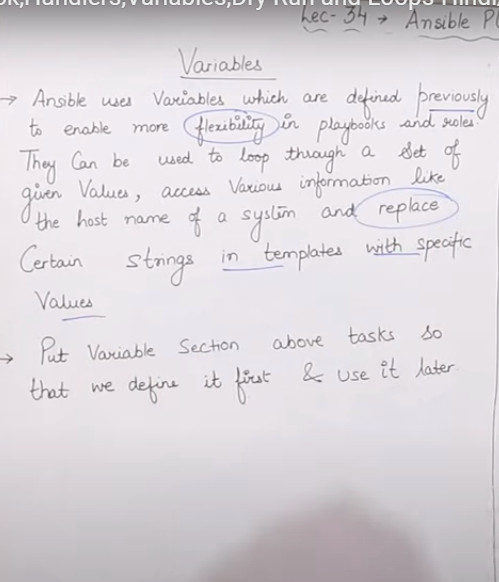 Handlers,Variables,Dry Run and Loops Hindi
Lec- 34 → Ansible Pl
Variables
→ Ansible uses Variables which are defined previously
to enable more flexibility in playbooks and roles.
They Can be used to loop through a set of
given Values, access Various information like
the host name of a system and replace
Certain strings in templates with specific
Values
→ Put Variable Section above tasks so
that we define it first & use it later.